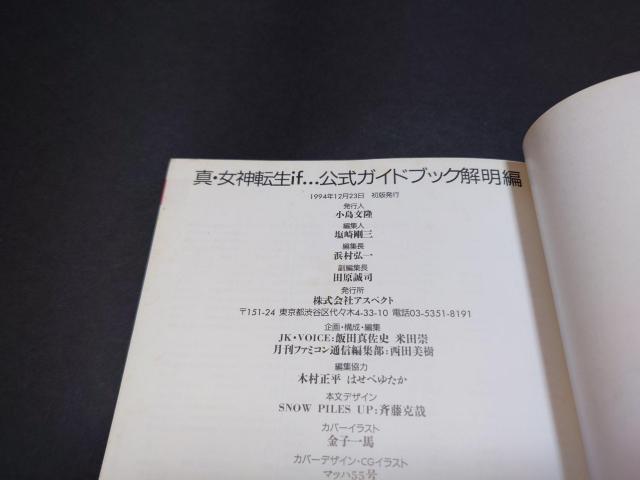 真・女神転生if...公式ガイドブック解明編
1994年12月23日 初版発行
発行人
小島文隆
編集人
塩崎剛三
編集長
浜村弘一
副編集長
田原誠司
発行所
株式会社アスペクト
〒151-24 東京都渋谷区代々木4-33-10 電話03-5351-8191
企画・構成・編集
JK・VOICE:飯田真佐史 米田崇
月刊ファミコン通信編集部:西田美樹
編集協力
木村正平 はせべゆたか
本文デザイン
SNOW PILES UP:斉藤克哉
カバーイラスト
金子一馬
カバーデザイン・CGイラスト
マッハ55号